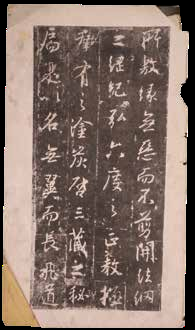 所敷緣無惡而不剪開法網
之綱紀弘六度之正教拯
群有之塗炭啓三藏之秘
扃是以名無翼而長飛道